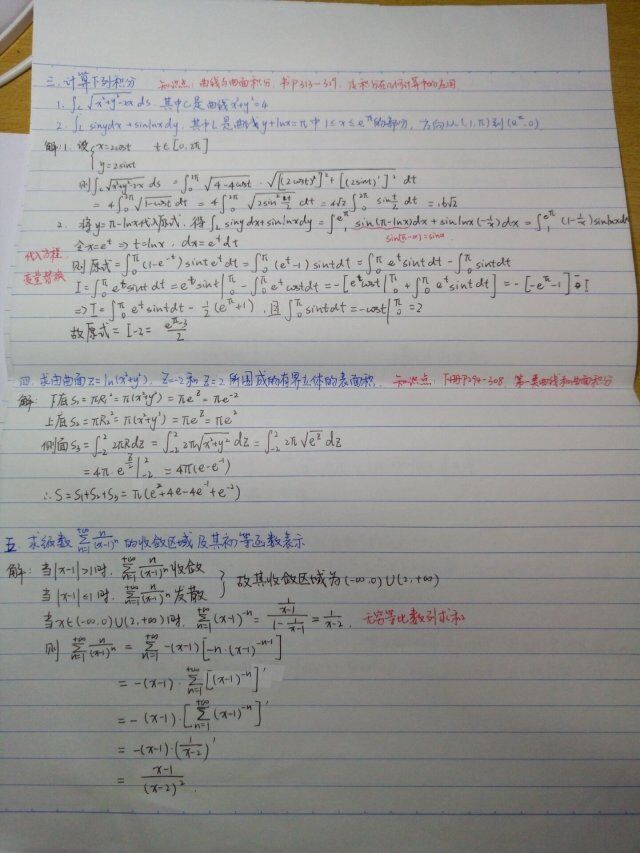 三. 计算下列积分 知识点：曲线与曲面积分，书P313-319，及积分在几何计算中的应用
1. ∫_C √(x²+y²-2x) ds, 其中C是曲线x²+y²=4
2. ∫_L sinydx+sinlnxdy, 其中L是曲线y+lnx=π中1≤x≤e^π的部分, 方向从(1,π)到(e^π,0)
解: 1. 设{x=2cost t∈[0,2π]
y=2sint
则∫_C √(x²+y²-2x) ds = ∫_0^{2π} √(4-4cost) · √([(2cost)']²+[(2sint)']²) dt
= 4∫_0^{2π} √(1-cost) dt = 4∫_0^{2π} √(2sin²(t/2)) dt = 4√2∫_0^{2π} sin(t/2) dt = 16√2
2. 将y=π-lnx代入原式, 得∫_L sinydx+sinlnxdy = ∫_1^{e^π} sin(π-lnx)dx+sinlnx(-1/x)dx = ∫_1^{e^π} (1-1/x)sinlnxdx
代入方程, 变量替换
sin(π-α)=sinα
令x=e^t ⇒ t=lnx, dx=e^t dt
则 原式=∫_0^π (1-e^{-t})sint e^t dt = ∫_0^π (e^t-1)sintdt = ∫_0^π e^t sintdt - ∫_0^π sintdt
I=∫_0^π e^t sintdt = e^t sint|_0^π - ∫_0^π e^t costdt = -[e^t cost|_0^π + ∫_0^π e^t sintdt] = -[-e^π-1] - I
⇒ I=∫_0^π e^t sintdt = 1/2(e^π+1), 因∫_0^π sintdt = -cost|_0^π = 2
故原式=I-2= (e^π-3)/2
四. 求由曲面z=ln(x²+y²), z=-2和z=2所围成的有界立体的表面积. 知识点：下册P294-308, 第一类曲线和曲面积分
解: 下底S₁=πR₁²=π(x²+y²)=πe^z=πe^{-2}
上底S₂=πR₂²=π(x²+y²)=πe^z=πe²
侧面S₃=∫_{-2}^2 2πRdz = ∫_{-2}^2 2π√(x²+y²) dz = ∫_{-2}^2 2π√(e^z) dz
= 4π·e^{z/2}|_{-2}^2 = 4π(e-e^{-1})
∴S=S₁+S₂+S₃=π(e²+4e-4e^{-1}+e^{-2})
五. 求级数 ∑_{n=1}^{+∞} n/(x-1)^n 的收敛区域及其初等函数表示
解: 当|x-1|>1时, ∑_{n=1}^{+∞} n/(x-1)^n 收敛
当|x-1|≤1时, ∑_{n=1}^{+∞} n/(x-1)^n 发散 } 故其收敛区域为(-∞,0)∪(2,+∞)
当x∈(-∞,0)∪(2,+∞)时, ∑_{n=1}^{+∞} (x-1)^{-n} = (1/(x-1))/(1-1/(x-1)) = 1/(x-2). 无穷等比数列求和
则 ∑_{n=1}^{+∞} n/(x-1)^n = ∑_{n=1}^{+∞} -(x-1)[-n·(x-1)^{-n-1}]
= -(x-1)·∑_{n=1}^{+∞} [(x-1)^{-n}]'
= -(x-1)·[∑_{n=1}^{+∞} (x-1)^{-n}]'
= -(x-1)·(1/(x-2))'
= (x-1)/(x-2)².